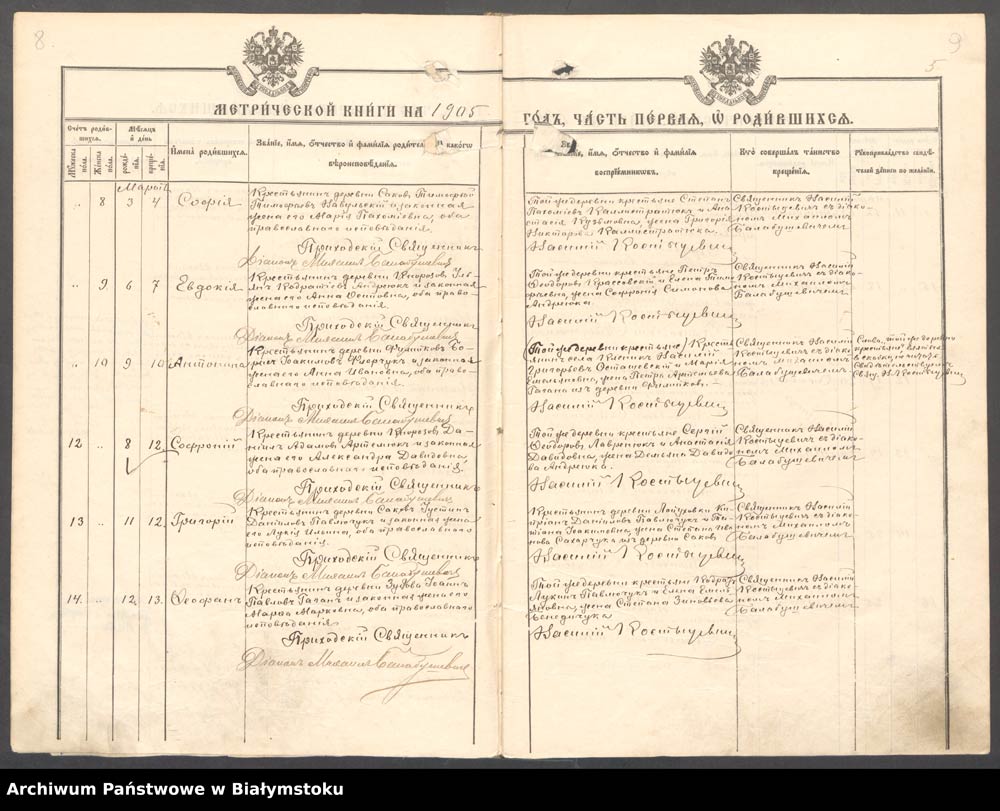 8.
9
5
МЕТРИЧЕСКОЙ КНИГИ НА 1905
ГОДЪ, ЧАСТЬ ПЕРВАЯ, Ѡ РОДИВШИХСЯ.
Счетъ родив-
шихся.
Мужеска
пола.
Женска
пола.
Мѣсяцъ
и день
рожде-
нія.
креще-
нія.
Имена родившихся.
Званіе, имя, отчество и фамилія родителей и какого
вѣроисповѣданія.
Званіе, имя, отчество и фамилія
воспріемниковъ.
Кто совершалъ таинство
крещенія.
Рукоприкладство свидѣ-
телей записи по желанію.
Мартъ
„ 8 3 4 Софія
Крестьянинъ деревни Саковъ
и законная
жена его Марія Павловна, оба
православнаго исповѣданія.
Приходскій Священникъ
Діаконъ Михаилъ Балабушевичъ
Той же деревни крестьяне Степанъ
и Ана-
стасія Кузьмовна, жена Григорія
Василій Костыцевичъ
Священникъ Василій
Костыцевичъ съ діако-
номъ Михаиломъ
Балабушевичемъ
„ 9 6 7 Евдокія
Крестьянинъ деревни Кнорозовъ Уль-
янъ Кодратіевъ Андреюкъ и законная
жена его Анна Осиповна, оба право-
славнаго исповѣданія.
Приходскій Священникъ
Діаконъ Михаилъ Балабушевичъ
Той же деревни крестьяне Петръ
Ѳеодоровъ Красовскій и Елена
жена Софронія Симонова
Андреюка.
Василій Костыцевичъ
Священникъ Василій
Костыцевичъ съ діако-
номъ Михаиломъ
Балабушевичемъ
„ 10 9 10 Антонина
Крестьянинъ деревни
Іоакимовъ и законная
жена его Анна Ивановна, оба право-
славнаго исповѣданія.
Приходскій Священникъ
Діаконъ Михаилъ Балабушевичъ
Той же деревни крестьяне
села Василій
Григорьевъ Осташевскій и Марія
Емельяновна, жена Петра
Гагана изъ деревни
Василій Костыцевичъ
Священникъ Василій
Костыцевичъ съ діако-
номъ Михаиломъ
Балабушевичемъ
Слова „той же деревни
крестьяне"
12 „ 8 12 Софроній
Крестьянинъ деревни Кнорозовъ Да-
ніилъ Адамовъ Артемюкъ и законная
жена его Александра Давидовна,
оба православнаго исповѣданія.
Приходскій Священникъ
Діаконъ Михаилъ Балабушевичъ
Той же деревни крестьяне Сергій
Ѳеодоровъ Лавренюкъ и Анастасія
Давидовна, жена Демьяна Давидо-
ва Андреюка.
Василій Костыцевичъ
Священникъ Василій
Костыцевичъ съ діако-
номъ Михаиломъ
Балабушевичемъ
13 „ 11 12. Григорій
Крестьянинъ деревни Саковъ Іустинъ
Даніиловъ Павлючукъ и законная жена
его Лукія Ильина, оба православнаго
исповѣданія.
Приходскій Священникъ
Діаконъ Михаилъ Балабушевичъ
Крестьяне деревни Ки-
пріанъ Даніиловъ Павлючукъ и Та-
тіана Іоакимовна, жена Степана Ива-
нова Захарчука изъ деревни Саковъ
Василій Костыцевичъ
Священникъ Василій
Костыцевичъ съ діако-
номъ Михаиломъ
Балабушевичемъ
14. „ 12. 13. Ѳеофанъ
Крестьянинъ деревни Зубова Іоаннъ
Павловъ Гаганъ и законная жена его
Марѳа Марковна, оба православнаго
исповѣданія
Приходскій Священникъ
Діаконъ Михаилъ Балабушевичъ
Той же деревни крестьяне Кодратъ
Лукинъ Павлючукъ и Елена
жена Степана Зиновьева
Бенедичука
Василій Костыцевичъ
Священникъ Василій
Костыцевичъ съ діако-
номъ Михаиломъ
Балабушевичемъ
Archiwum Państwowe w Białymstoku